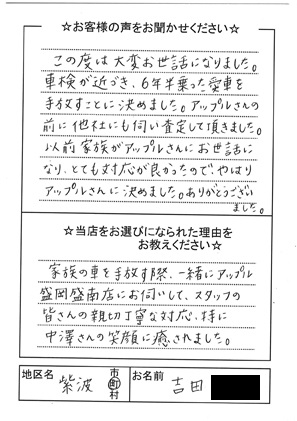 ☆お客様の声をお聞かせください☆
この度は大変お世話になりました。
車検が近づき、6年半乗った愛車を
手放すことに決めました。アップルさんの
前に他社にも伺い査定して頂きました。
以前家族がアップルさんにお世話に
なり、とても対応が良かったので、やはり
アップルさんに決めました。ありがとうござい
ました。
☆当店をお選びになられた理由を
お教えください☆
家族の車を手放す際、一緒にアップル
盛岡盛南店にお伺いして、スタッフの
皆さんの親切丁寧な対応、特に
中澤さんの笑顔に癒されました。
地区名 紫波 市町村 お名前 吉田